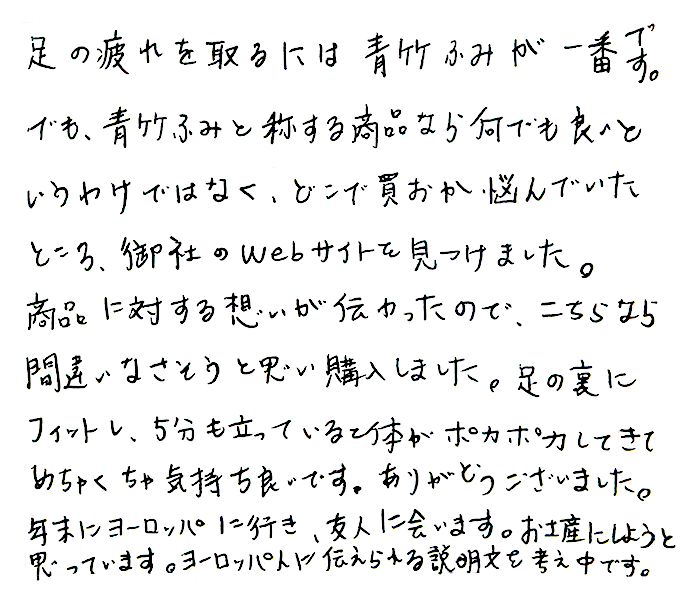 足の疲れを取るには青竹ふみが一番です。
でも、青竹ふみと称する商品なら何でも良いと
いうわけではなく、どこで買おか悩んでいた
ところ、御社のWebサイトを見つけました。
商品に対する想いが伝わったので、こちらなら
間違いなさそうと思い購入しました。足の裏に
フィットし、5分も立っていると体がポカポカしてきて
めちゃくちゃ気持ち良いです。ありがとうございました。
年末にヨーロッパに行き、友人に会います。お土産にしようと
思っています。ヨーロッパ人に伝えられる説明文を考え中です。